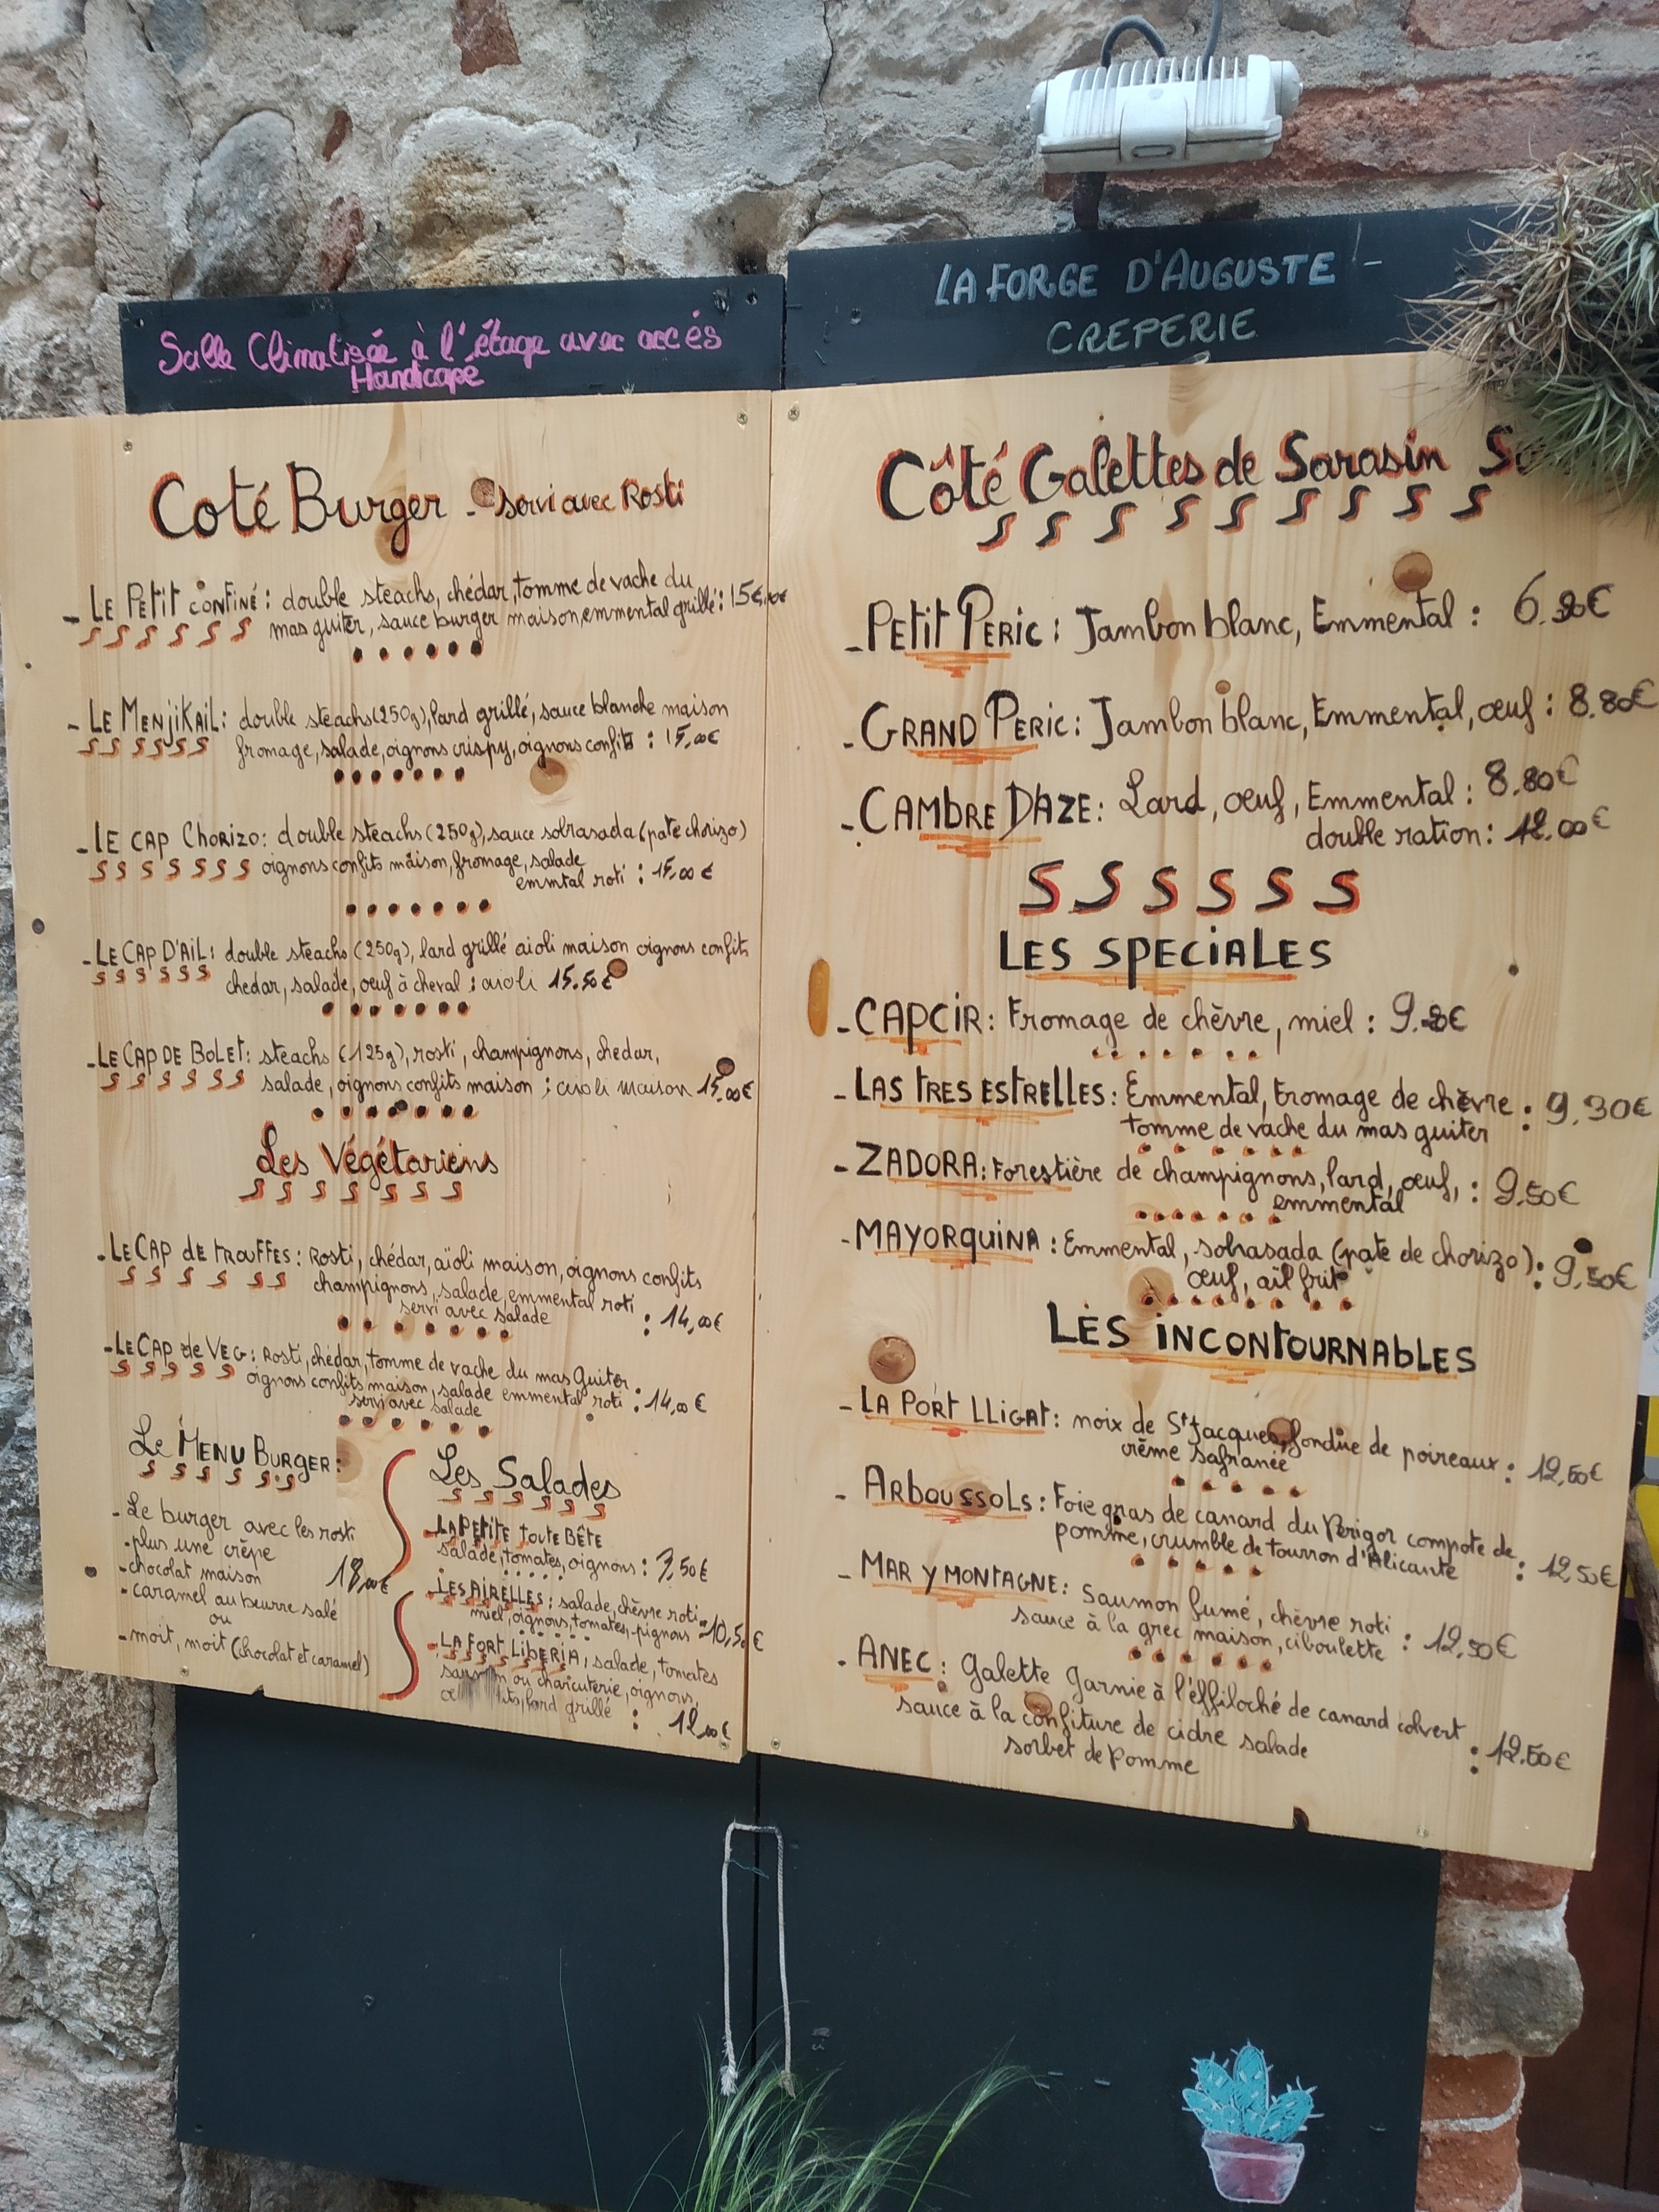 Salle Climatisée à l'étage avec accés
Handicapé
LA FORGE D'AUGUSTE -
CREPERIE
Coté Burger - servi avec Rosti
- LE PETIT CONFINÉ : double steachs, chédar, tomme de vache du
mas guiter, sauce burger maison, emmental grillé : 15€
- LE MENJIKAIL : double steachs (250g), lard grillé, sauce blanche maison
fromage, salade, oignons crispy, oignons confits : 15,00€
- LE CAP CHORIZO : double steachs (250g), sauce sobrasada (pate chorizo)
oignons confits maison, fromage, salade
emmtal roti : 15,00€
- LE CAP D'AIL : double steachs (250g), lard grillé aioli maison oignons confits
chedar, salade, oeuf à cheval ; aioli 15.50€
- LE CAP DE BOLET : steachs (125g), rosti, champignons, chedar,
salade, oignons confits maison ; aioli maison 15,00€
Les Végétariens
- LE CAP DE TROUFFES : Rosti, chédar, aïoli maison, oignons confits
champignons, salade, emmental roti
servi avec salade : 14,00€
- LE CAP de VEG : Rosti, chédar, tomme de vache du mas Guiter,
oignons confits maison, salade emmental roti : 14,00€
servi avec salade
Le MENU BURGER :
- Le burger avec les rosti
- plus une crêpe
- chocolat maison 18,00€
- caramel au beurre salé
ou
- moit, moit (chocolat et caramel)
Les Salades
- LA PETITE TOUTE BÊTE
salade, tomates, oignons : 7,50€
- LES AIRELLES : salade, chèvre roti
miel, oignons, tomates, pignons = 10,50€
- LA FORT LIBERIA ; salade, tomates
ou charcuterie, oignons,
lard grillé : 12,00€
Côté Galettes de Sarasin
- PETIT PERIC : Jambon blanc, Emmental : 6.80€
- GRAND PERIC : Jambon blanc, Emmental, œuf : 8.80€
- CAMBRE D'AZE : Lard, œuf, Emmental : 8.80€
double ration : 12.00€
LES SPECIALES
- CAPCIR : Fromage de chèvre, miel : 9.80€
- LAS TRES ESTRELLES : Emmental, fromage de chèvre : 9,30€
tomme de vache du mas guiter
- ZADORA : Forestière de champignons, lard, œuf, : 9.50€
emmental
- MAYORQUINA : Emmental, sobrasada (pate de chorizo) : 9,50€
œuf, ail frit
LES INCONTOURNABLES
- LA PORT LLIGAT : noix de St Jacques, fondue de poireaux : 12,50€
crème safranée
- ARBOUSSOLS : Foie gras de canard du Périgor compote de
pomme, crumble de tourron d'Alicante : 12,50€
- MAR Y MONTAGNE : Saumon fumé, chèvre roti
sauce à la grec maison, ciboulette : 12,50€
- ANEC : Galette Garnie à l'effiloché de canard colvert
sauce à la confiture de cidre salade : 12.50€
sorbet de Pomme